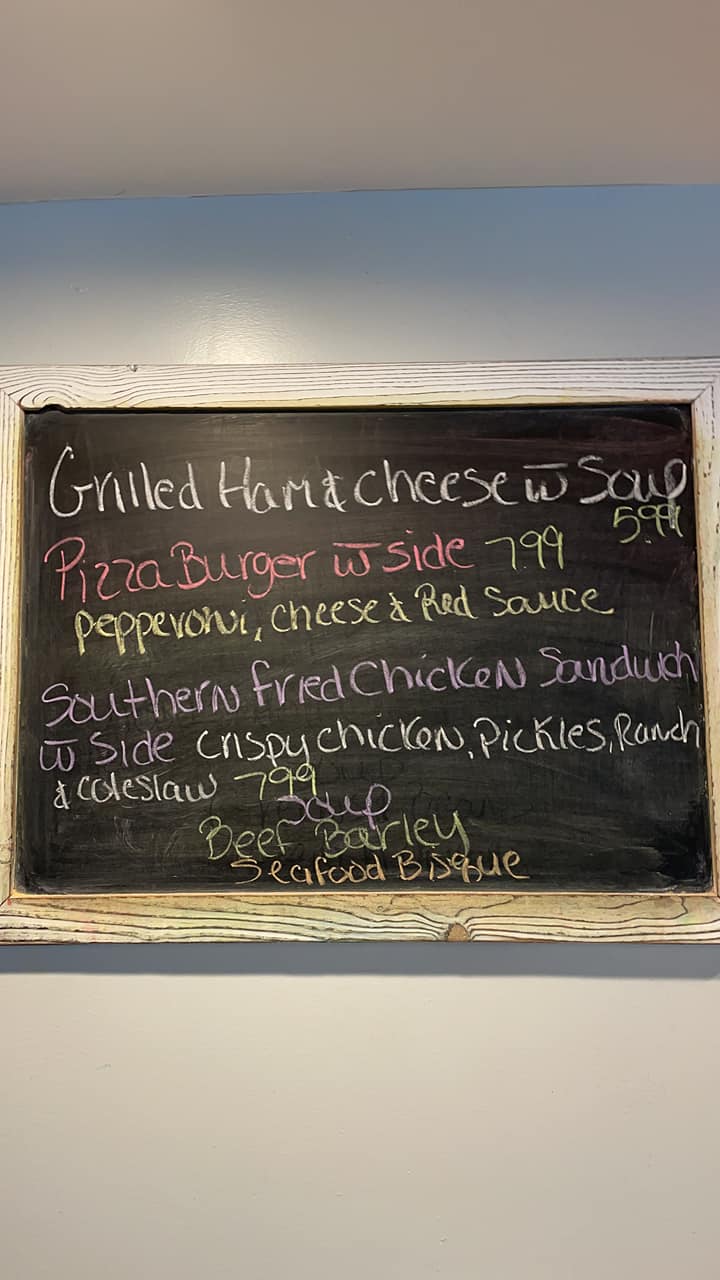 Grilled Ham & cheese w̅ Soup
5.99
Pizza Burger w̅ side 7.99
pepperoni, cheese & Red Sauce
Southern Fried Chicken Sandwich
w̅ Side crispy chicken, Pickles, Ranch
& coleslaw 7.99
Soup
Beef Barley
Seafood Bisque